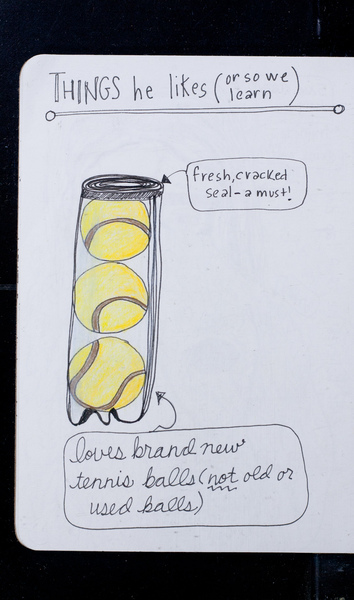 THINGS he likes (or so we
learn)
fresh, cracked
seal - a must!
loves brand new
tennis balls (not old or
used balls)